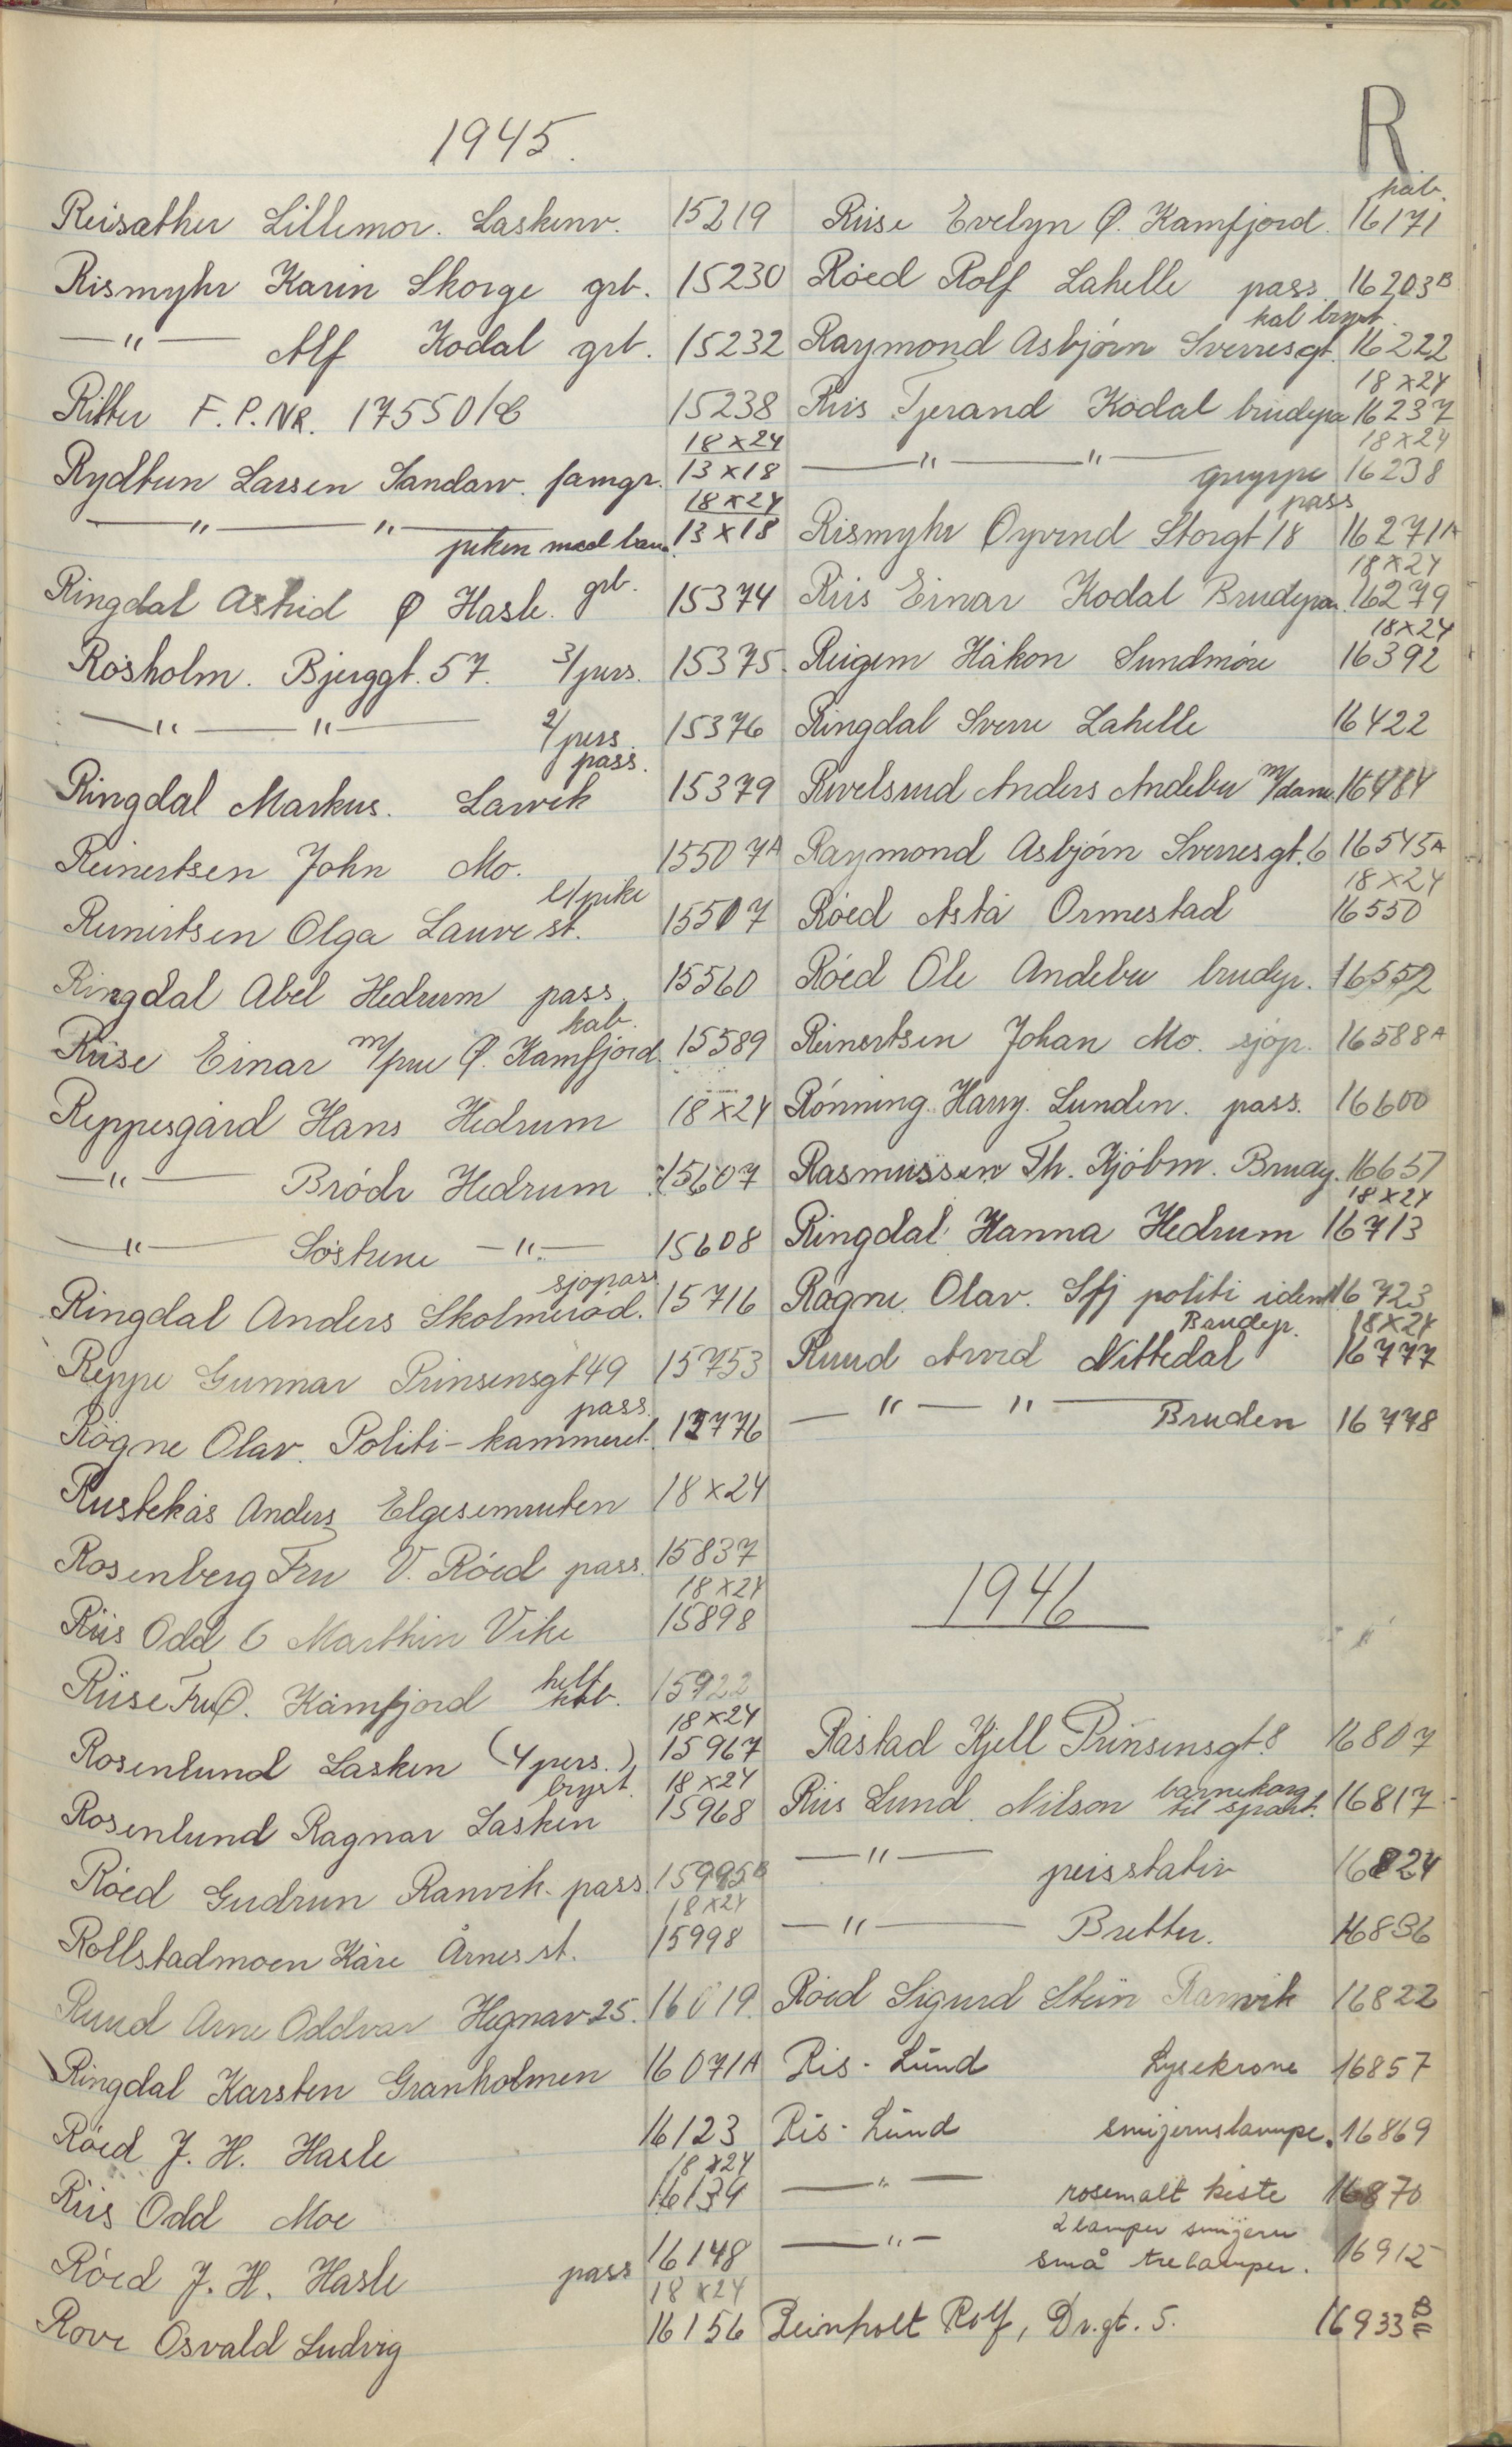 R
1945.
Reisæther Lillemor. Laskenv. 15219
Rismyhr Karin Skorge grb. 15230
—"— Alf Kodal grb. 15232
Ritter F.P.NR. 17550/B 15238
18x24
Rydtun Larsen Sandarv. famgr. 13x18
18x24
—"—"— piken med bam. 13x18
Ringdal Astrid Ø Hasle. grb. 15374
Rosholm. Bjerggt. 57. 3/pers. 15375.
—"—"— 2/pers. 15376
pass.
Ringdal Markus. Larvik 15379
Reinertsen John Mo. 15507A
l/pike
Reinertsen Olga Lauve st. 15507
Ringdal Abel Hedrum pass. 15560
kab.
Riise Einar m/frue Ø. Kamfjord. 15589
Reppesgård Hans Hedrum 18x24
—"— Brødr Hedrum 15607
—"— Søskene —"— 15608
sjøpass
Ringdal Anders Skolmerød. 15716
Reppe Gunnar Prinsensgt 49 15753
pass.
Rogne Olav. Politi-kammeret. 15776
Rustekås Anders Elgesemruten 18x24
Rosenberg Fru V. Røed pass. 15837
18x24
Riis Odd 6 Marthin Vike 15898
Riise Fru Ø. Kamfjord helt kab. 15922
18x24
Rosenlund Lasken (4 pers.) 15967
bryst. 18x24
Rosenlund Ragnar Lasken 15968
Røed Gudrun Ranvik. pass. 15995B
18x24
Rollstadmoen Kåre Årnes st. 15998
Ruud Arne Oddvar Hegnav 25. 16019.
Ringdal Karsten Granholmen 16071A
Røed J. H. Hasle 16123
18x24
Riis Odd Moe 16134
Røed J. H. Hasle pass 16148
18x24
Rove Osvald Ludvig 16156
kab.
Riise Evelyn Ø. Kamfjord. 16171
Røed Rolf Lahelle pass. 16203B
kab bryst.
Raymond Asbjørn Sverresgt. 16222
18x24
Riis Tjerand Kodal brudepa 16237
18x24
—"—"— gruppe 16238
pass
Rismyhr Øyvind Storgt 18 16271A
18x24
Riis Einar Kodal Brudepa. 16279
18x24
Reigem Håkon Sundmøre 16392
Ringdal Sverre Lahelle 16422
Rivelsrud Anders Andebu m/dame. 16484
Raymond Asbjørn Sverresgt. 6 16545A
18x24
Røed Asta Ormestad 16550
Røed Ole Andebu brudep. 16552
Reinertsen Johan Mo. sjøp. 16588A
Rønning. Harry. Lunden. pass. 16600
Rasmussen Th. Kjøbm. Brudep. 16657
18x24
Ringdal Hanna Hedrum 16713
Rogne Olav. Sfj politi ident 16723
Brudep. 18x24
Ruud Arvid Nittedal 16777
—"—"— Bruden 16778
1946
Råstad Kjell Prinsensgt. 8 16807
Riis Lund Nilson barnekorg til sprant. 16817
—"— peisstativ 16824
—"— Bretter. 16836
Røed Sigurd Stein Ranvik 16822
Ris-Lund Lysekrone 16857
Ris-Lund smijernslampe. 16869
—"— rosemalt kiste 16870
2 lamper smijern
—"— små trelamper. 16912
Reinholt Rolf, Dr.gt. 5. 16933 B